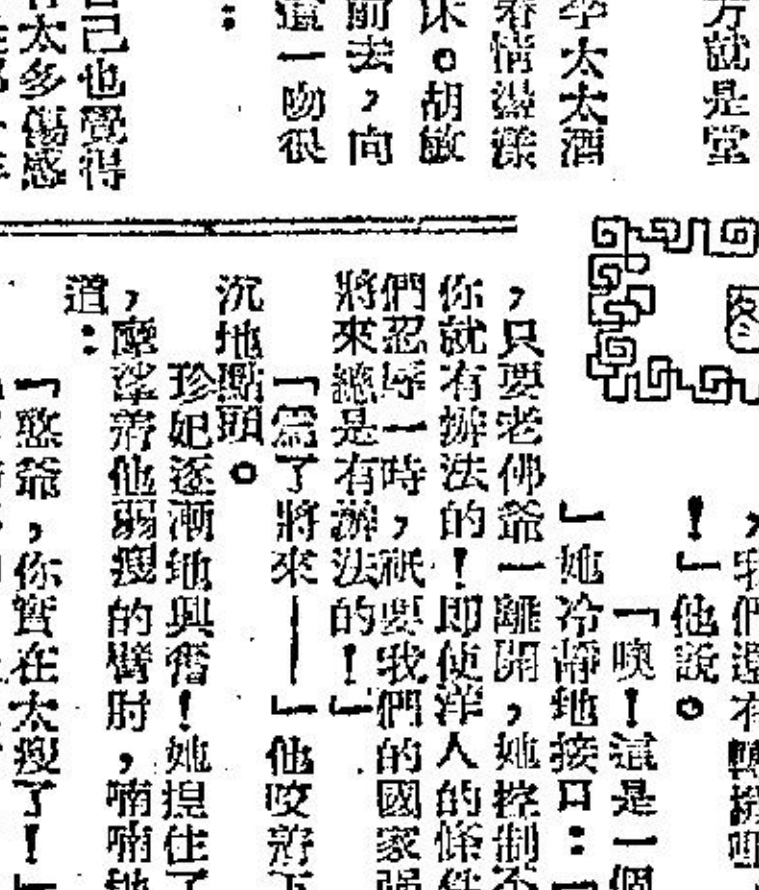 方就是堂
李太太酒
春情盪漾
床。胡敏
前去,向
這一吻很
:
自己也覺得
太多傷感
我們還有轉
!」他說。
「噢!這是一個
」她冷靜地接口:「
,只要老佛爺一離開,她控制不
你就有辦法的!即使洋人的條件
們忍辱一時,祇要我們的國家强
將來總是有辦法的!」
「爲了將來——」他咬着下
沉地點頭。
珍妃逐漸地興奮!她揑住了
,摩挲着他弱瘦的臂肘,喃喃地
道:
「憨爺,你實在太瘦了!」